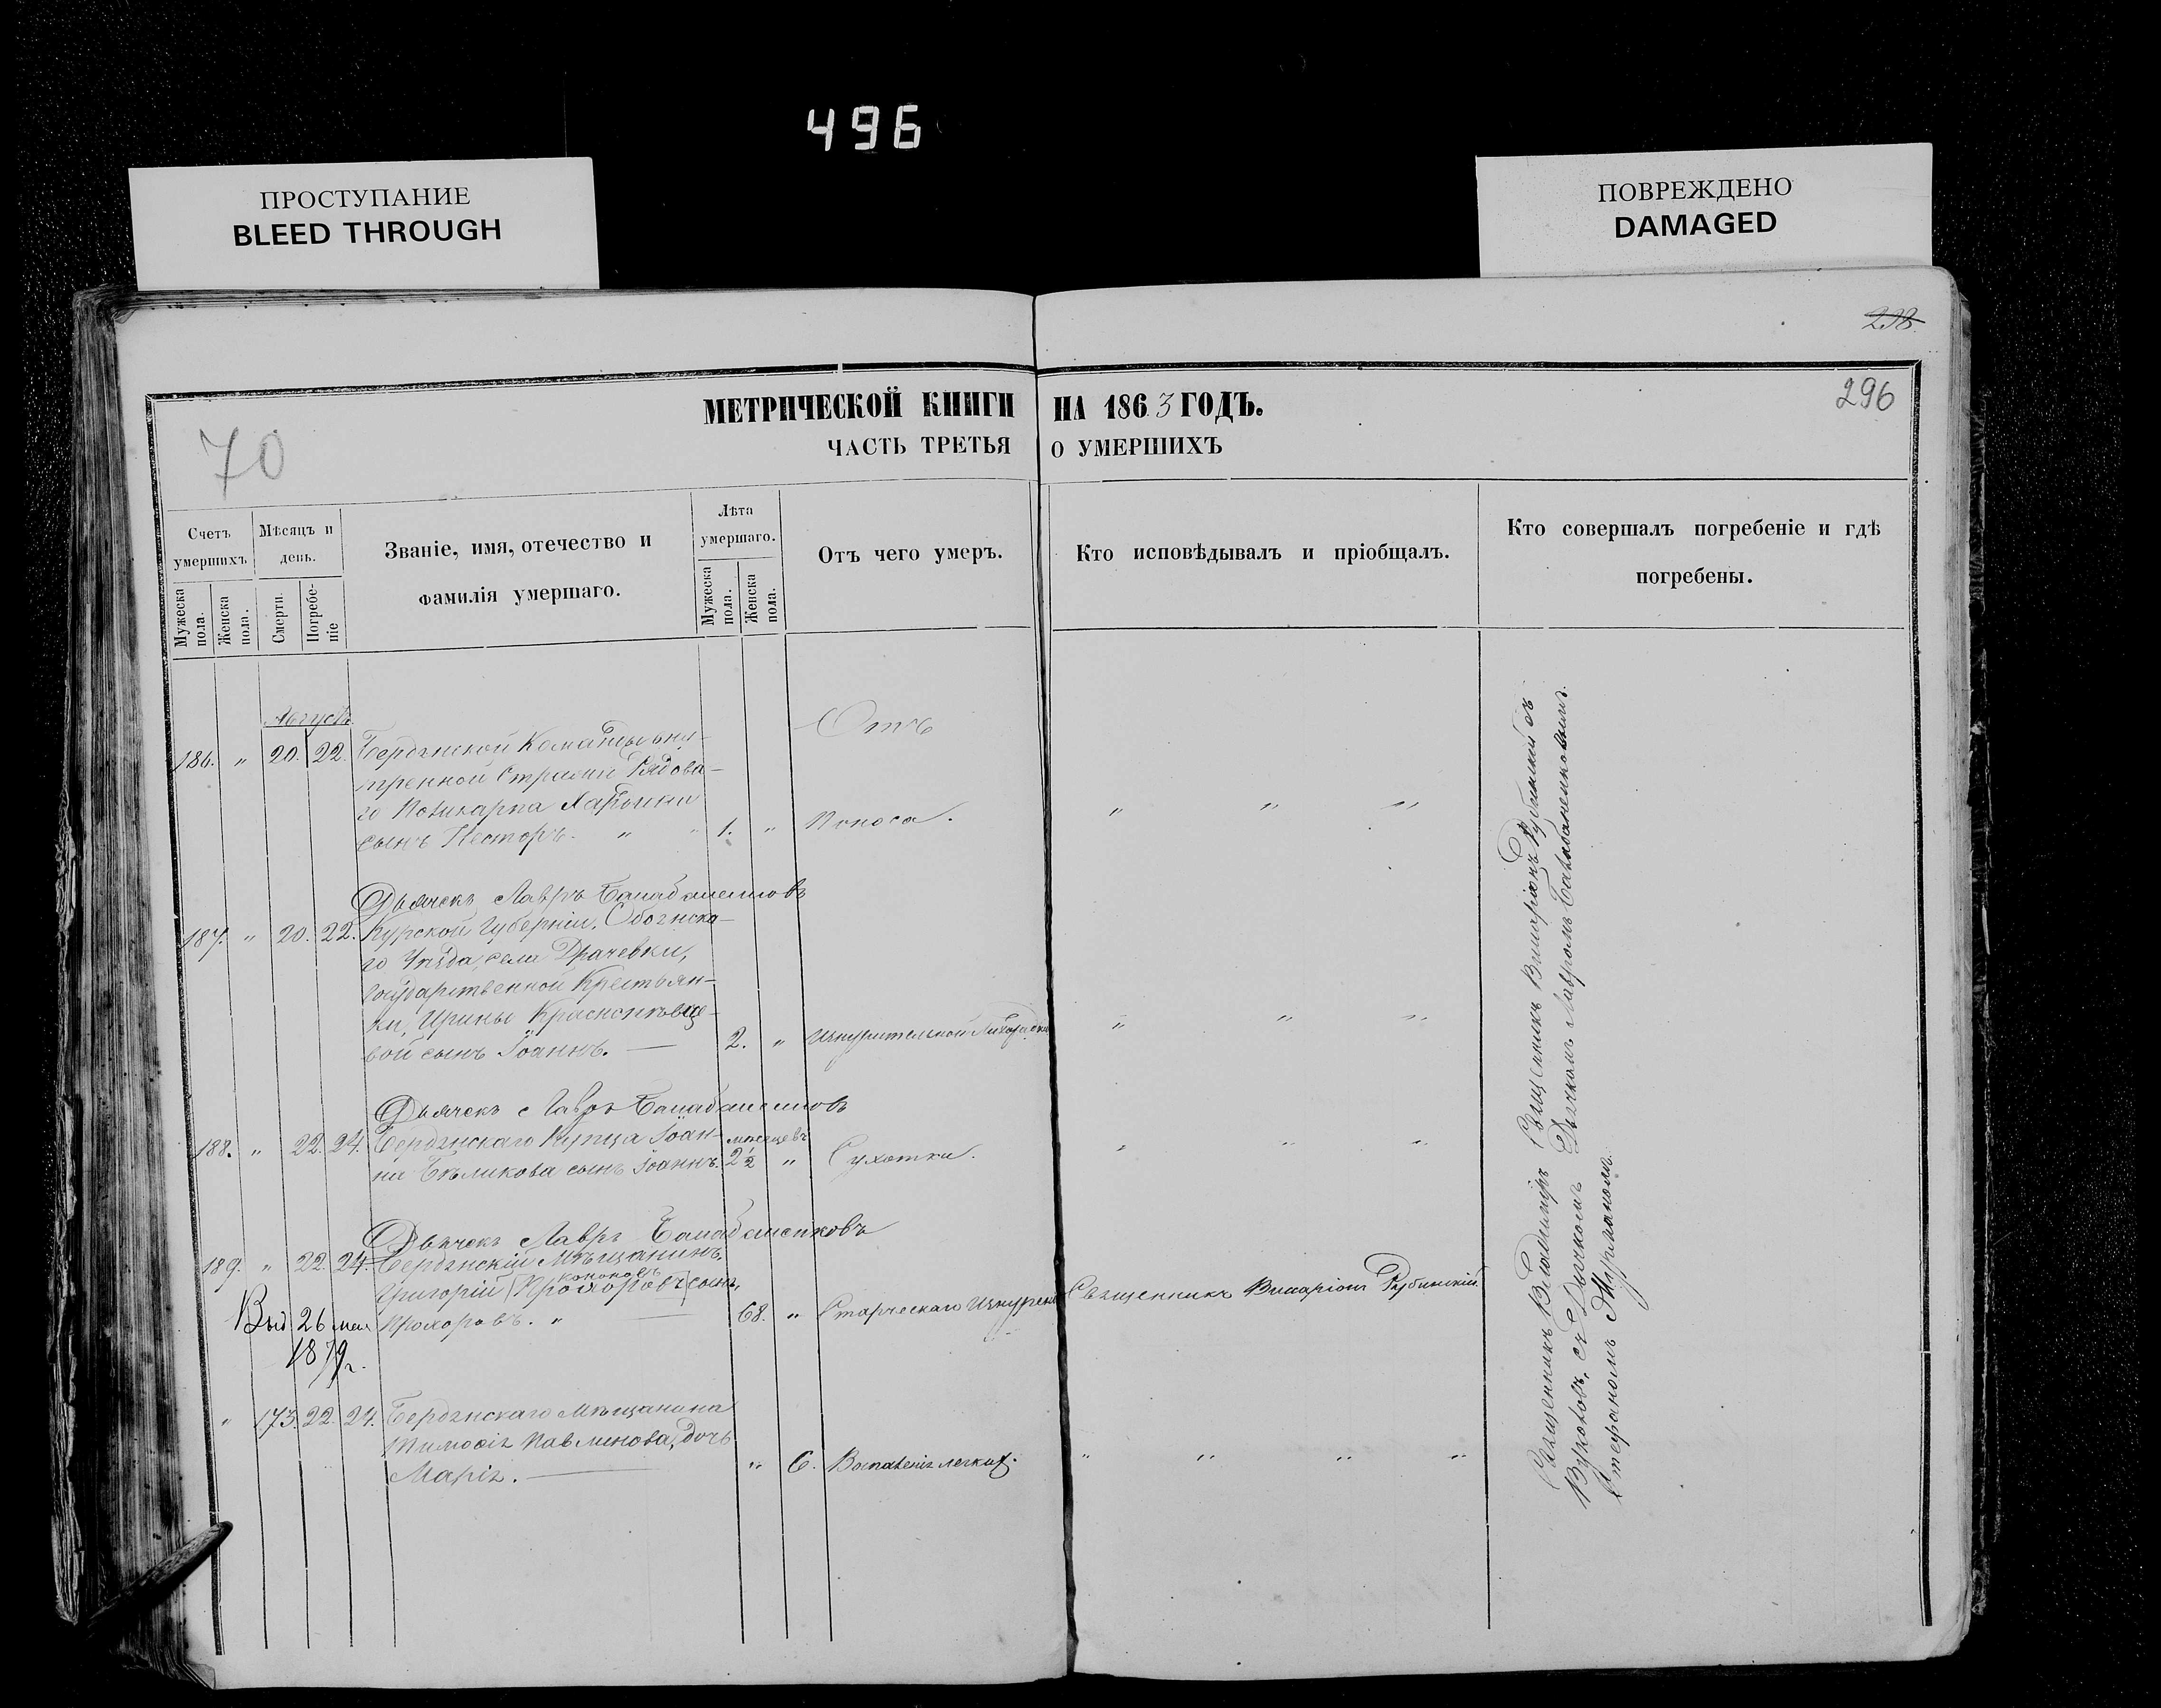 496
ПРОСТУПАНИЕ
BLEED THROUGH
ПОВРЕЖДЕНО
DAMAGED
298.
296
70
МЕТРИЧЕСКОЙ КНИГИ НА 1863 ГОДЪ.
ЧАСТЬ ТРЕТЬЯ О УМЕРШИХЪ
Счетъ умершихъ
Мужеска пола.
Женска пола.
Мѣсяцъ и день.
Смерти.
Погребеніе
Званіе, имя, отечество и фамилія умершаго.
Лѣта умершаго.
Мужеска пола.
Женска пола.
Отъ чего умеръ.
Кто исповѣдывалъ и пріобщалъ.
Кто совершалъ погребеніе и гдѣ погребены.
Августъ
Отъ
186. " 20. 22. Бердянской Команды вну-
тренной Стражи Рядова-
го Поликарпа
сынъ Несторъ. " " 1. " Поноса. " " "
Дьячекъ Лавръ
187. " 20. 22. Курской Губерніи, Обоянска-
го Уѣзда, села Драчевки,
Государственной Крестьян-
ки, Ирины
вой сынъ Іоаннъ. — 2. " Изнурительной Лихорадки " " "
Дьячекъ Лавръ
188. " 22. 24. Бердянскаго Купца Іоан- мѣсяцевъ
на Бѣликова сынъ Іоаннъ. 2½ " Сухотки. " " "
Дьячекъ Лавръ
189. " 22. 24. Бердянскій Мѣщанинъ
Кононовъ
Григорій (Прохоровъ) сынъ,
Прохоровъ. " — 68. " Старческаго Священникъ Виларіонъ Рубинскій
Выд. 26 мая
1879 г.
" 173. 22. 24. Бердянскаго Мѣщанина
Тимоѳія Павлинова, дочь
Марія. — " 6. Воспаленія легких. " " " "
Священникъ Владиміръ Священникъ Виларіонъ Рубинскій съ
съ Дьячкомъ Дьячкомъ Лавромъ
Стефаномъ